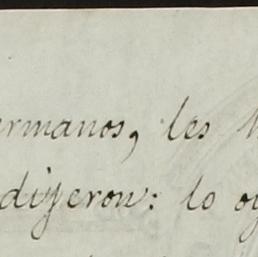 ermanos, les
dijeron: lo